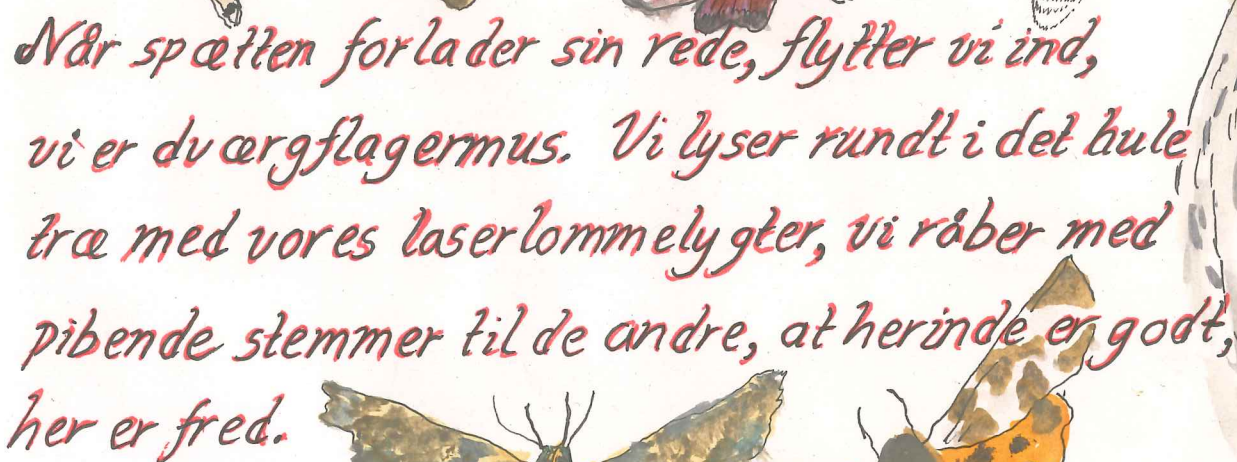 Når spætten forlader sin rede, flytter vi ind,
vi er dværgflagermus. Vi lyser rundt i det hule
træ med vores laserlommelygter, vi råber med
pibende stemmer til de andre, at herinde er godt,
her er fred.